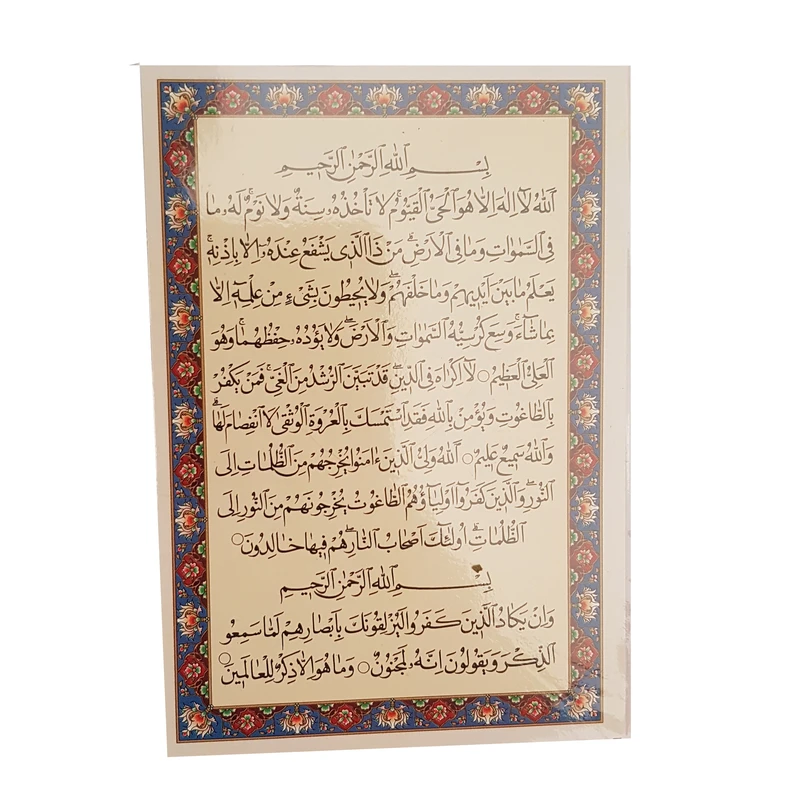 بِسْمِ اللهِ الرَّحْمٰنِ الرَّحِیمِ
اَللهُ لَآ اِلٰهَ اِلَّا هُوَ الْحَیُّ الْقَیُّومُ ۚ لَا تَأْخُذُهُ سِنَةٌ وَلَا نَوْمٌ ۚ لَهُ مَا
فِی السَّمٰوَاتِ وَمَا فِی الْاَرْضِ ۗ مَنْ ذَا الَّذِی یَشْفَعُ عِنْدَهُ اِلَّا بِاِذْنِهِ ۚ
یَعْلَمُ مَا بَیْنَ اَیْدِیهِمْ وَمَا خَلْفَهُمْ ۖ وَلَا یُحِیطُونَ بِشَیْءٍ مِنْ عِلْمِهِ اِلَّا
بِمَا شَآءَ ۚ وَسِعَ کُرْسِیُّهُ السَّمٰوَاتِ وَالْاَرْضَ ۖ وَلَا یَؤُدُهُ حِفْظُهُمَا ۚ وَهُوَ
الْعَلِیُّ الْعَظِیمُ ○ لَآ اِکْرَاهَ فِی الدِّینِ ۖ قَدْ تَبَیَّنَ الرُّشْدُ مِنَ الْغَیِّ ۚ فَمَنْ یَکْفُرْ
بِالطَّاغُوتِ وَیُؤْمِنْ بِاللهِ فَقَدِ اسْتَمْسَكَ بِالْعُرْوَةِ الْوُثْقٰی لَا انْفِصَامَ لَهَا ۗ
وَاللهُ سَمِیعٌ عَلِیمٌ ○ اَللهُ وَلِیُّ الَّذِینَ ءَامَنُوا یُخْرِجُهُمْ مِنَ الظُّلُمَاتِ اِلَی
النُّورِ ۖ وَالَّذِینَ کَفَرُوا اَوْلِیَاؤُهُمُ الطَّاغُوتُ یُخْرِجُونَهُمْ مِنَ النُّورِ اِلَی
الظُّلُمَاتِ ۗ اُولٰئِكَ اَصْحَابُ النَّارِ ۖ هُمْ فِیهَا خَالِدُونَ ○
بِسْمِ اللهِ الرَّحْمٰنِ الرَّحِیمِ
وَاِنْ یَکَادُ الَّذِینَ کَفَرُوا لَیُزْلِقُونَكَ بِاَبْصَارِهِمْ لَمَّا سَمِعُو
الذِّکْرَ وَیَقُولُونَ اِنَّهُ لَمَجْنُونٌ ○ وَمَا هُوَ اِلَّا ذِکْرٌ لِلْعَالَمِینَ ○